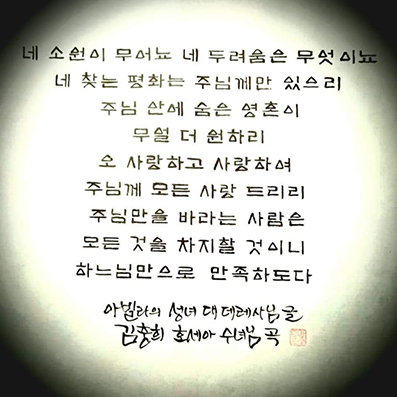 네 소원이 무어뇨 네 두려움은 무엇이뇨
네 찾는 평화는 주님께만 있으리
주님 안에 숨은 영혼이
무얼 더 원하리
오 사랑하고 사랑하여
주님께 모든 사랑 드리리
주님만을 바라는 사람은
모든 것을 차지할 것이니
하느님만으로 만족하도다
아빌라의 성녀 대 데레사님 글
김충희 호세아 수녀님 곡